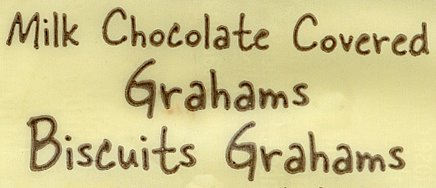 Milk Chocolate Covered
Grahams
Biscuits Grahams